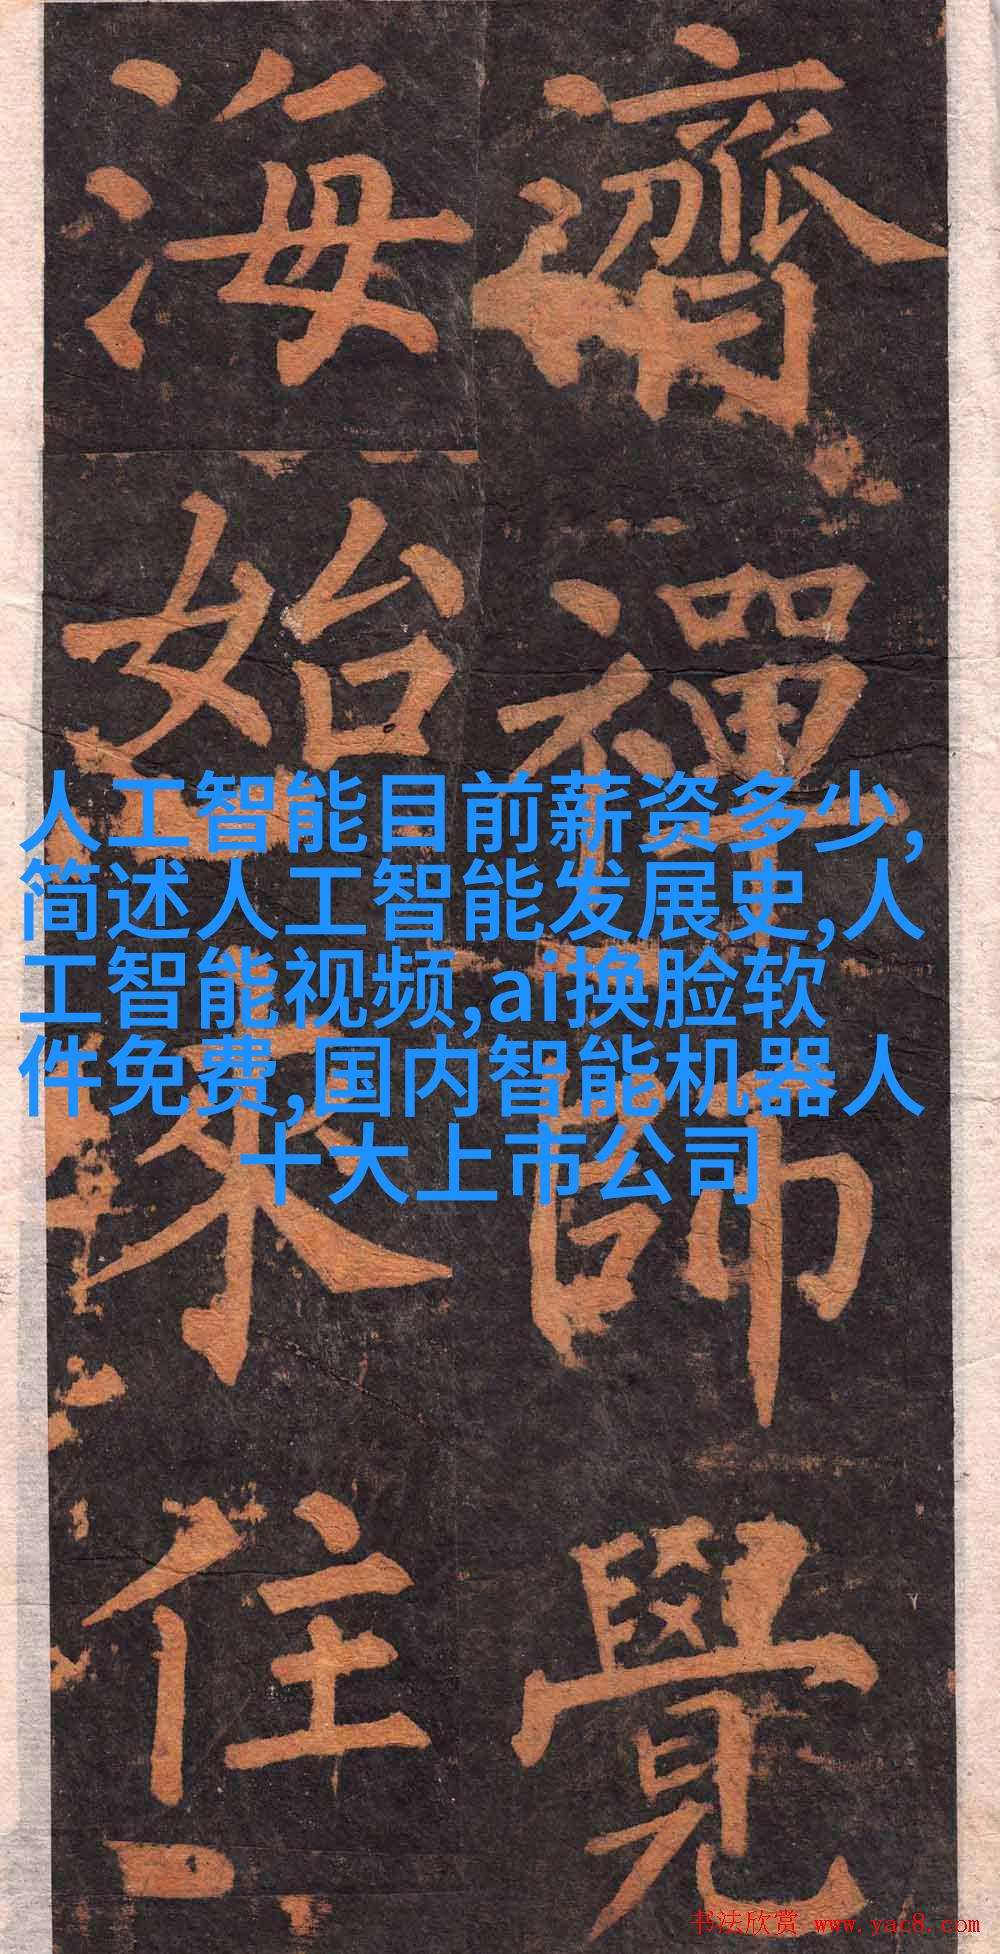 濟禪師覺
海始來住
人工智能目前薪资多少,
简述人工智能发展史,人
工智能视频,ai换脸软
件免费,国内智能机器人
十大上市公司
书法欣赏 www.yac8.com